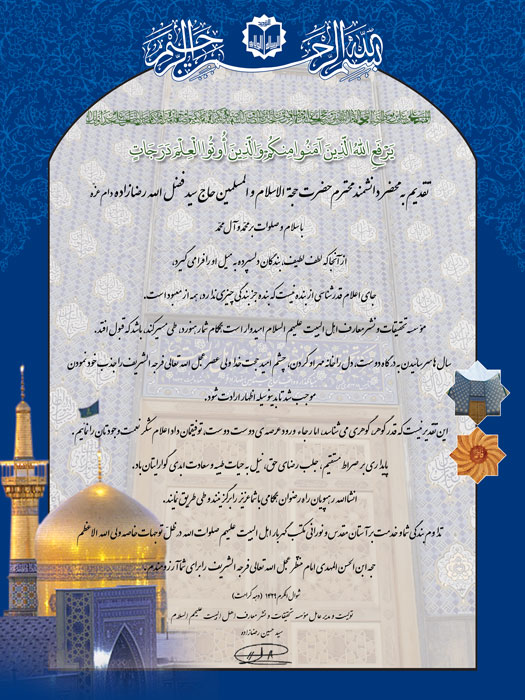 بسم الله الرحمن الرحیم
یَرْفَعِ اللهُ الَّذینَ آمَنُوا مِنْکُمْ وَ الَّذینَ أُوتُوا الْعِلْمَ دَرَجَاتٍ
تقدیم به محضر دانشمند محترم حضرت حجة الاسلام و المسلمین حاج سید فضل الله رضازاده دام عزه
با سلام و صلوات بر محمد و آل محمد
از آنجا که لطف لطیف، بندگان دلسپرده به میل او را فرا می گیرد،
جای اعلام قدرشناسی از بنده نیست که بنده جز بندگی چیزی ندارد، همه از معبود است.
مؤسسه تحقیقات و نشر معارف اهل البیت علیهم السلام امیدوار است بگام شما رهنورد، طی مسیر کند، باشد که قبول افتد.
سال ها سر ساییدن به درگاه دوست، دل را خانه مهر او کردن، چشم امید حجت خدا ولی عصر عجل الله تعالی فرجه الشریف را جذب خود نمودن
موجب شد تا بدینوسیله اظهار ارادت شود.
این تقدیر نیست که قدر گوهر، گوهری می شناسد، اما رجاء ورود عرصه ی دوست دوست، توفیقمان داد اعلام شکر نعمت وجودتان را نمائیم.
پایداری بر صراط مستقیم، جلب رضای حق، نیل به حیات طیبه و سعادت ابدی گوارایتان باد.
انشاالله رهپویان راه رضوان بگامی با شما عزیز را برگزیننده طی طریق نمایند.
تداوم بندگی شما و خدمت بر آستان مقدس و نورانی مکتب گهربار اهل البیت علیهم صلوات الله در ظل توجهات خاصه ولی الله الاعظم
حجه ابن الحسن المهدی امام منتظر عجل الله تعالی فرجه الشریف را برای شما آرزومندم.
شوال المکرم ۱۴۳۶ (دهه کرامت)
تولیت و مدیر عامل مؤسسه تحقیقات و نشر معارف اهل البیت علیهم السلام
سید حسین رضازاده